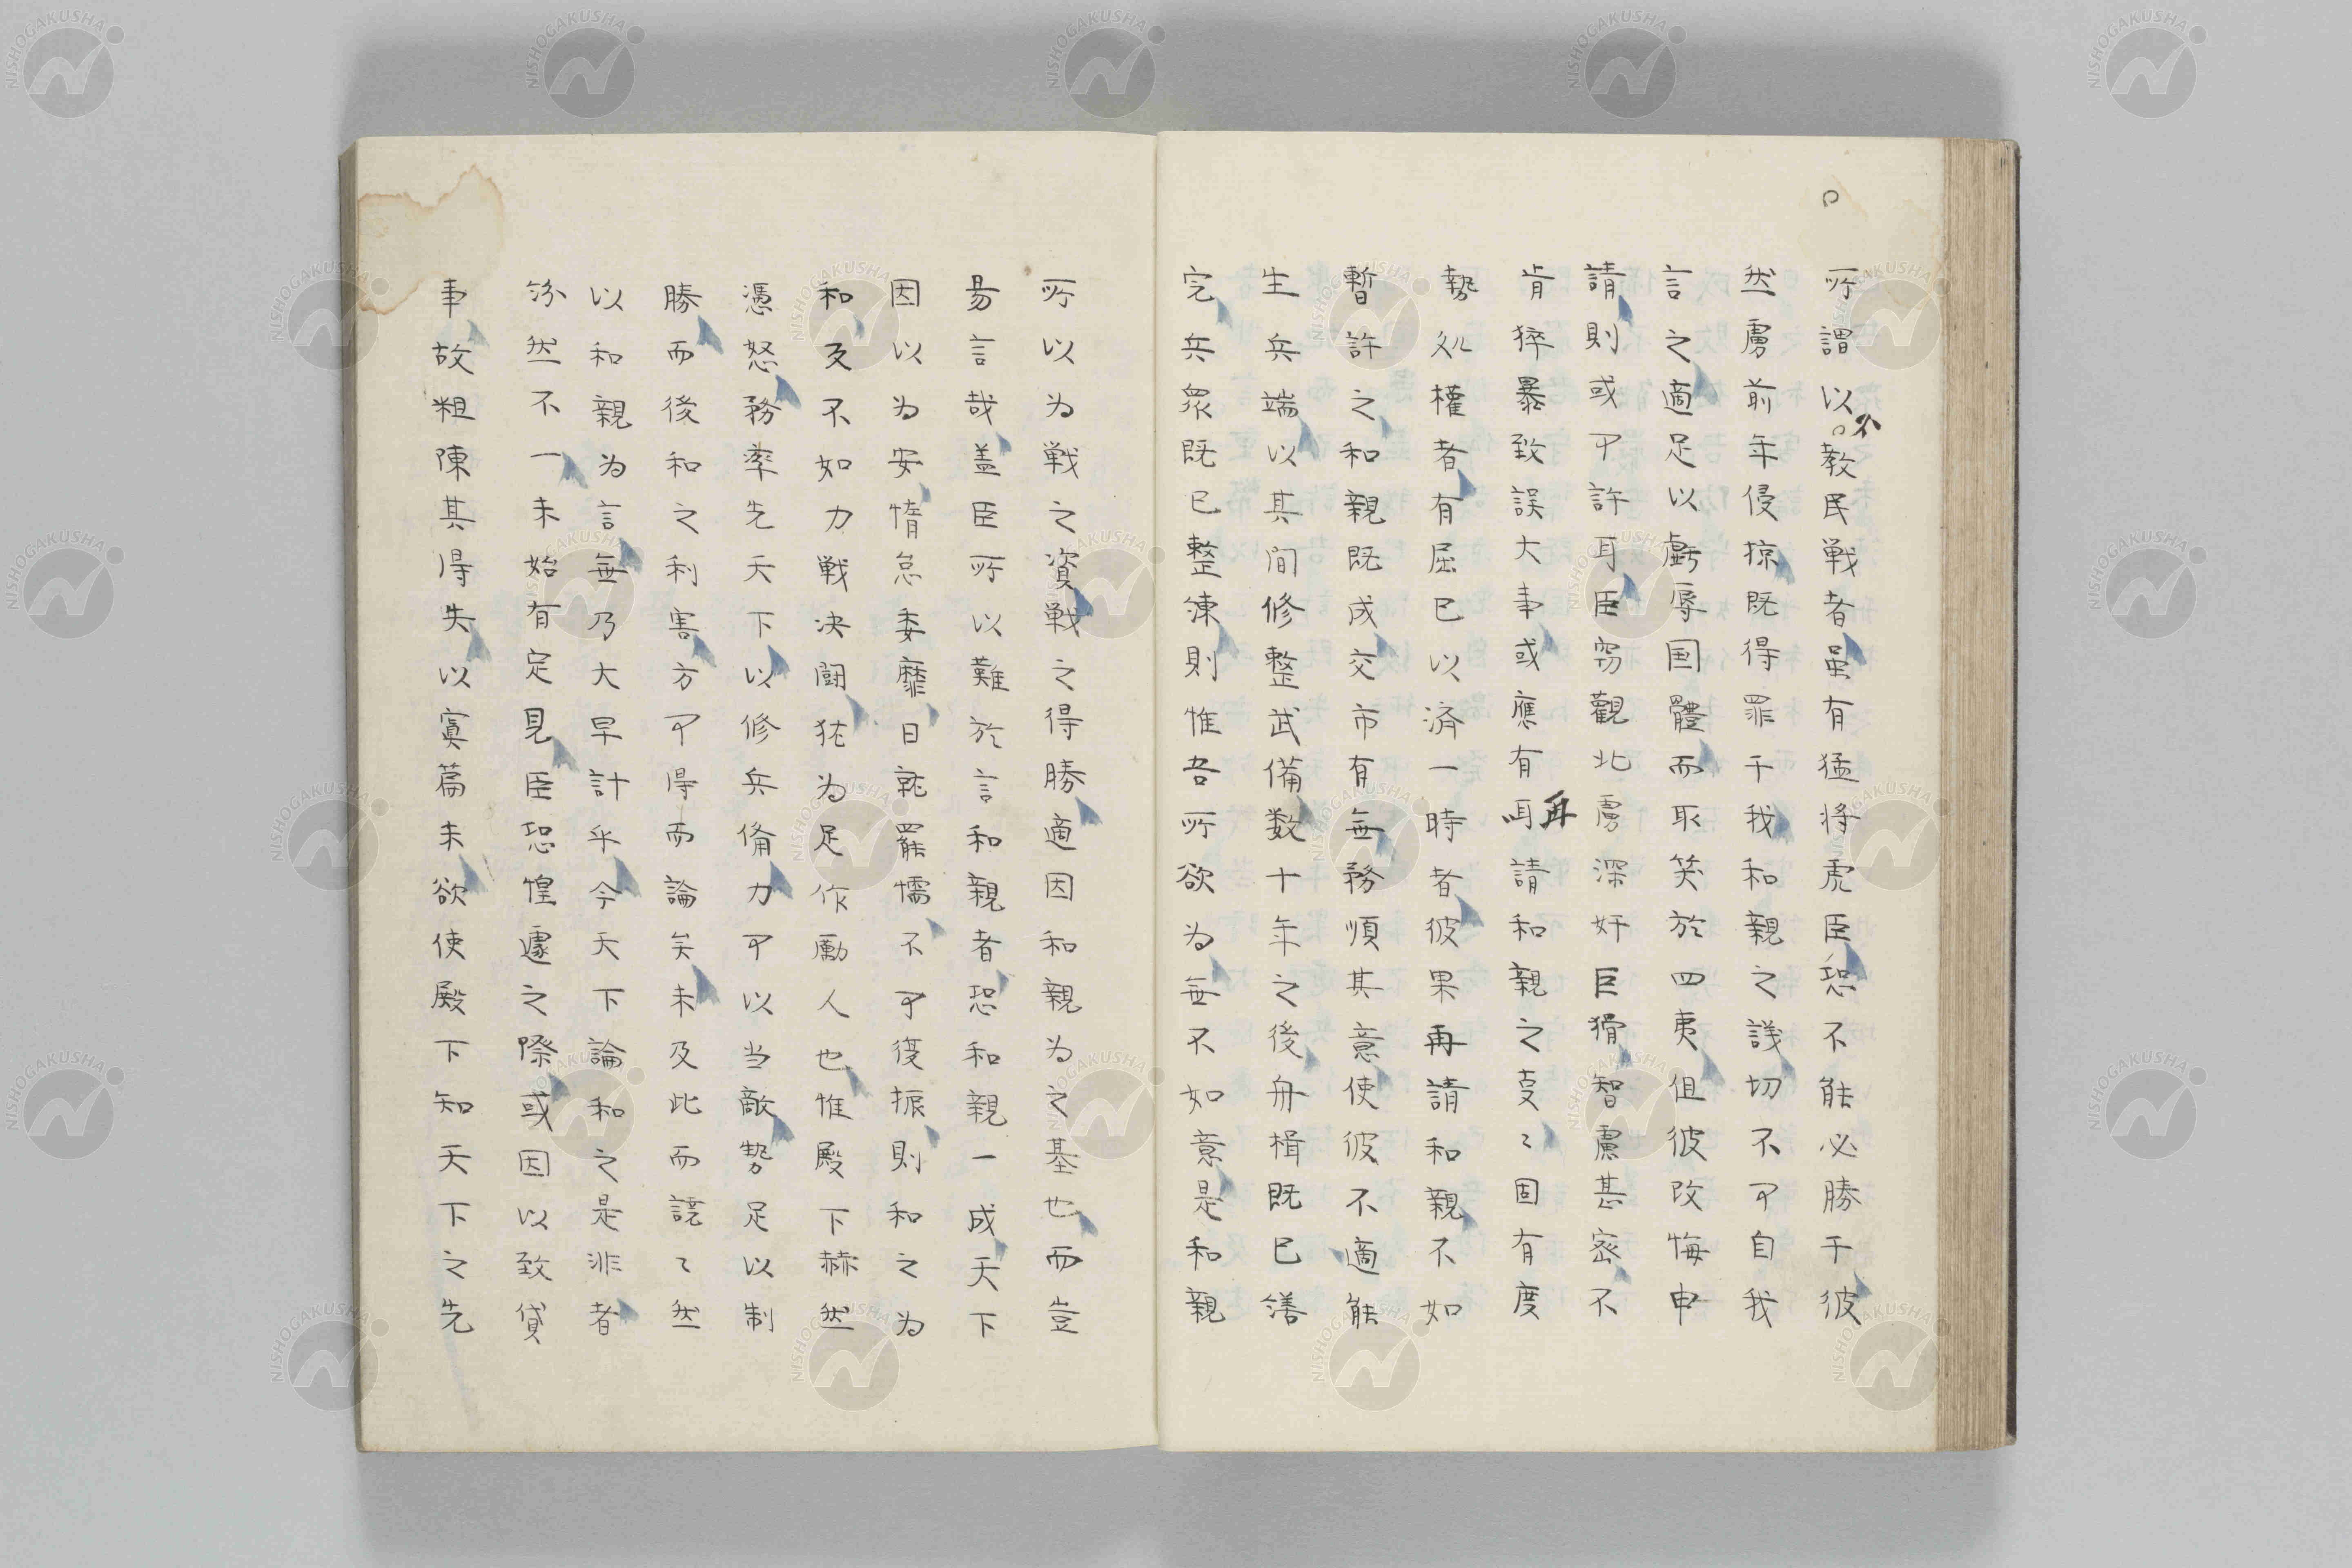 所謂以不教民戦者虽有猛将虎臣恐不能必勝于彼
然虜前年侵掠既得罪于我和親之議切不可自我
言之適足以虧辱国體而取笑於四夷但彼改悔申
請則或可許耳臣窃觀北虜深奸巨猾智慮甚密不
肯猝暴致誤大事或應有再請和親之支〻固有度
勢処權者有屈已以済一時者彼果再請和親不如
暫許之和親既成交市有無務順其意使彼不適能
生兵端以其间修整武備数十年之後舟楫既已繕
完兵衆既已整凍則惟吾所欲为無不如意是和親
所以为戦之資戦之得勝適因和親为之基也而豈
易言哉盖臣所以難於言和親者恐和親一成天下
因以为安惰怠委靡日就罷懦不可復振則和之为
和反不如力戦决闘犹为足作励人也惟殿下赫然
憑怒務率先天下以修兵备力可以当敵勢足以制
勝而後和之利害方可得而論矣未及此而謊〻然
以和親为言無乃大早計乎今天下論和之是非者
紛然不一未始有定見臣恐惶遽之際或因以致貸
事故粗陳其得失以寘篇末欲使殿下知天下之先
NISHOGAKUSHA